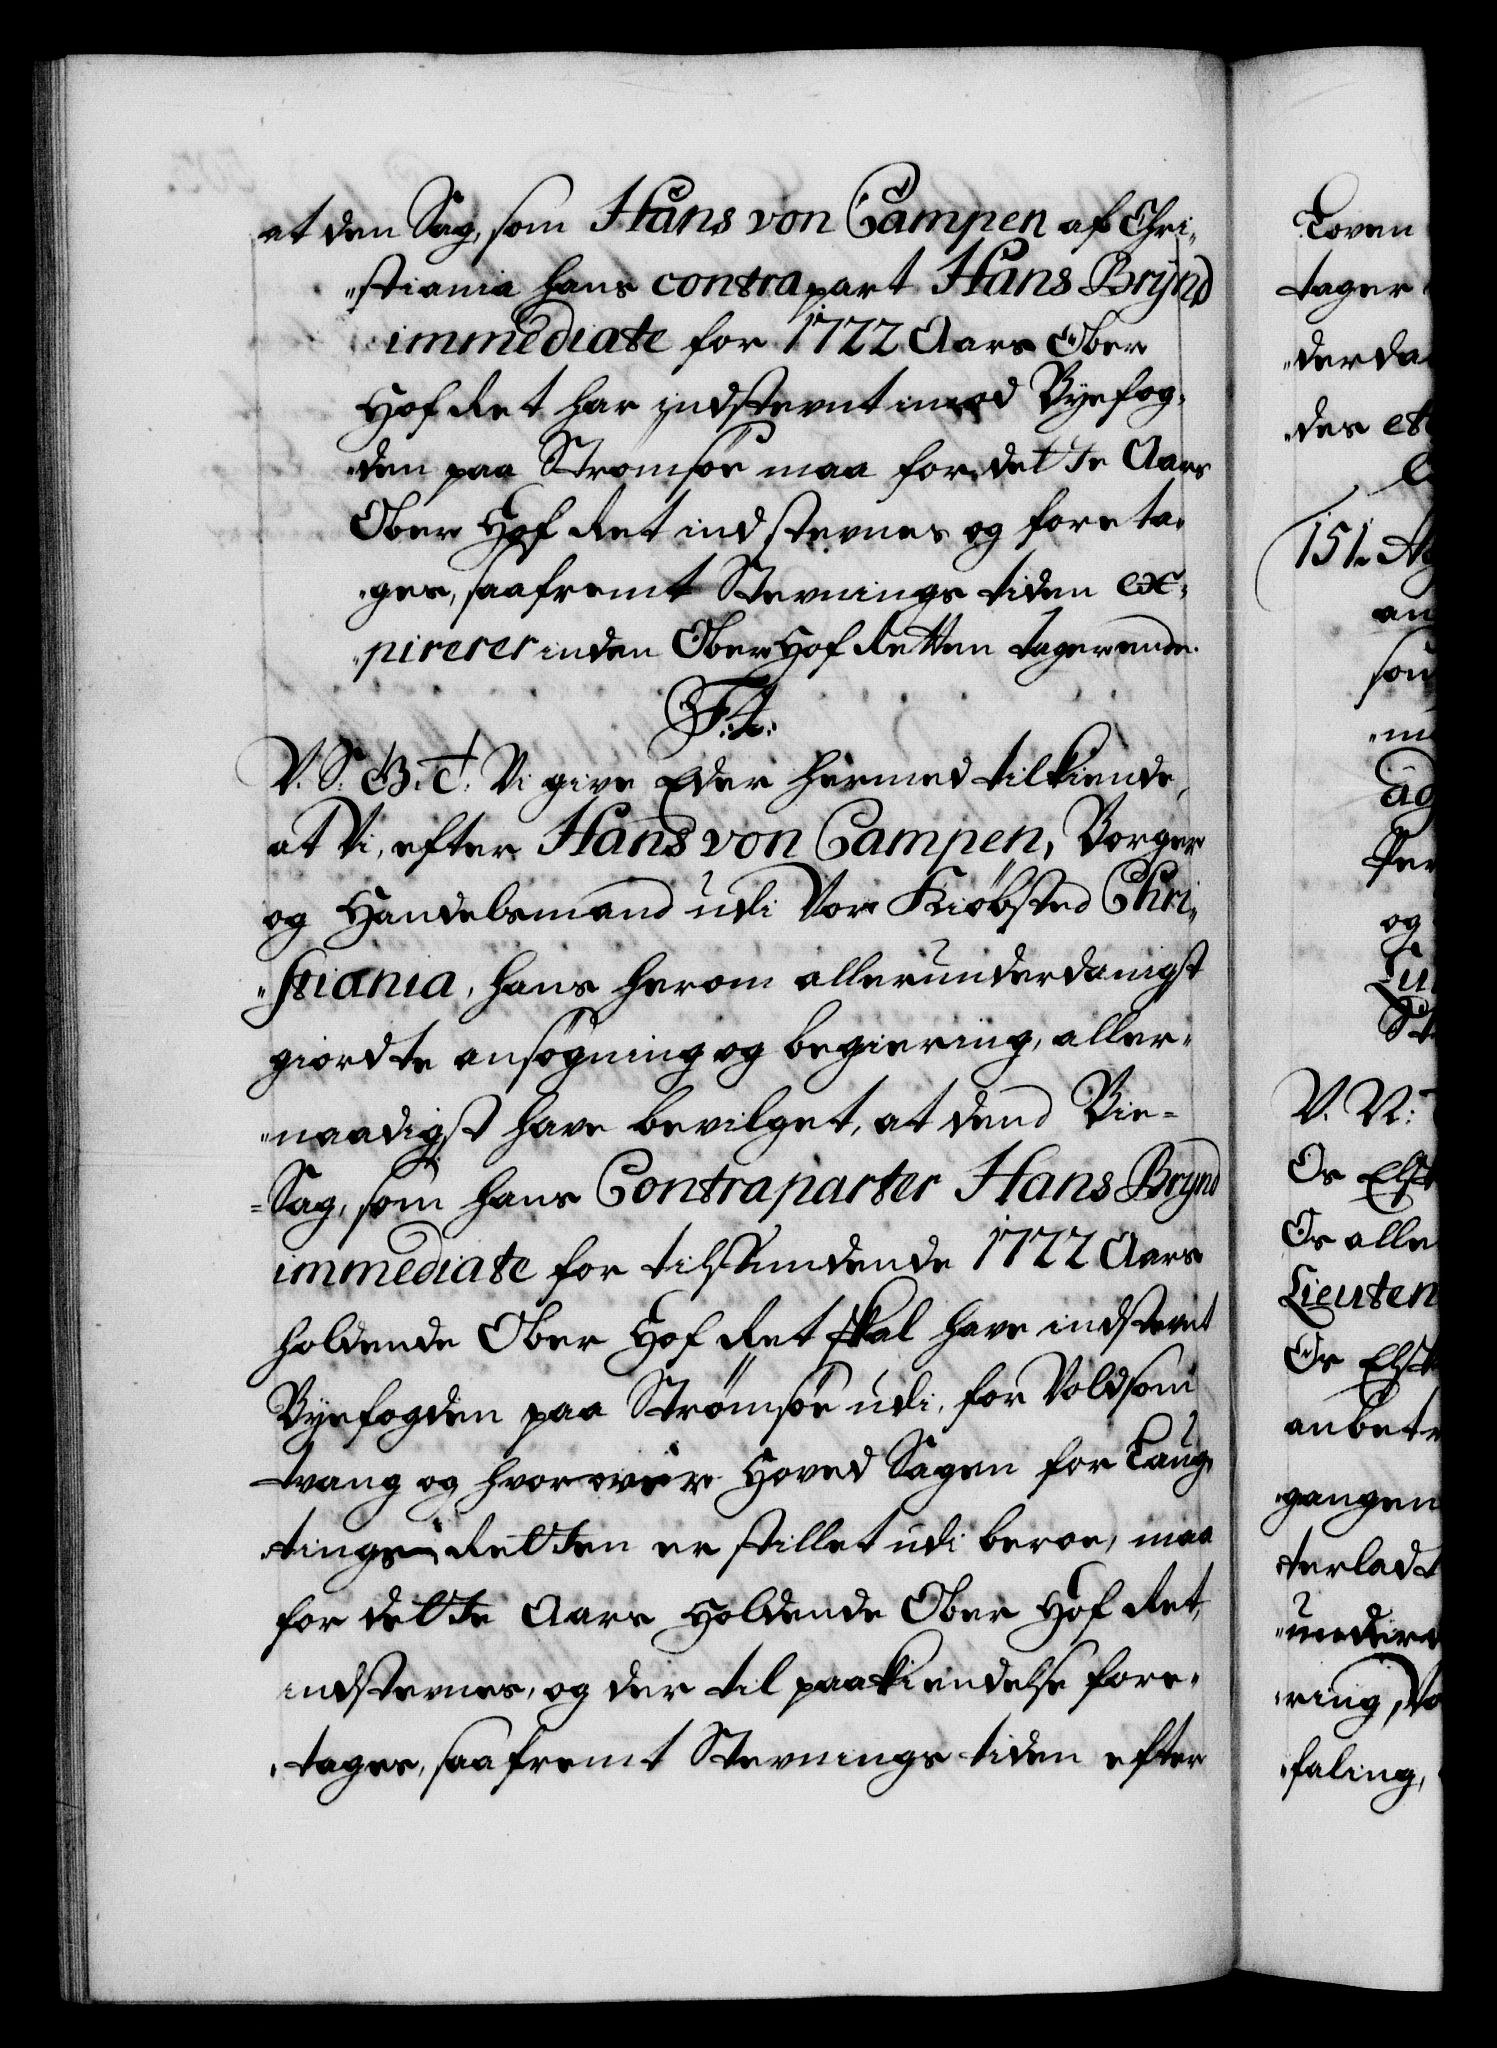 at den Sag, som Hans von Campen af Chri„
„stiania hans contrapart Hans Brynd
immediate for 1722 Aars Ober
Hof Ret har indstevnt imod Byefog„
„den paa Strømsøe maa for dette Aars
Ober Hof Ret indstevnes og foreta„
„ges, saafremt Stevnings tiden ex„
„pirerer inden Ober Hof Retten tager ende.
F. 4.
V. S. G. T. Vi give Eder hermed tilkiende,
at Vi, efter Hans von Campen, Borger
og Handelsmand udi Vor Kiøbsted Chri„
„stiania, hans herom allerunderdanigst
giordte ansøgning og begiering, aller„
„naadigst have bevilget, at dend Bie=
=Sag, som hans Contraparter Hans Brynd
immediate for tilstundende 1722 Aars
holdende Ober Hof Ret skal have indstevnt
Byefogden paa Strømsøe udi, for Voldsom
tvang og hvorover Hoved Sagen for Laug„
„tings Retten er stillet udi beroe, maa
for dette Aars Holdende Ober Hof Ret,
indstevnes, og der til paakiendelse fore„
„tages, saafremt Stevnings tiden efter
Loven
tager
„derda
„des et
151.
an
som
og
V. N:
Os Elsk
Os alle
Lieuten
Os Elsk
anbetr
„gangen
terladt
„ring, Vo
„faling,